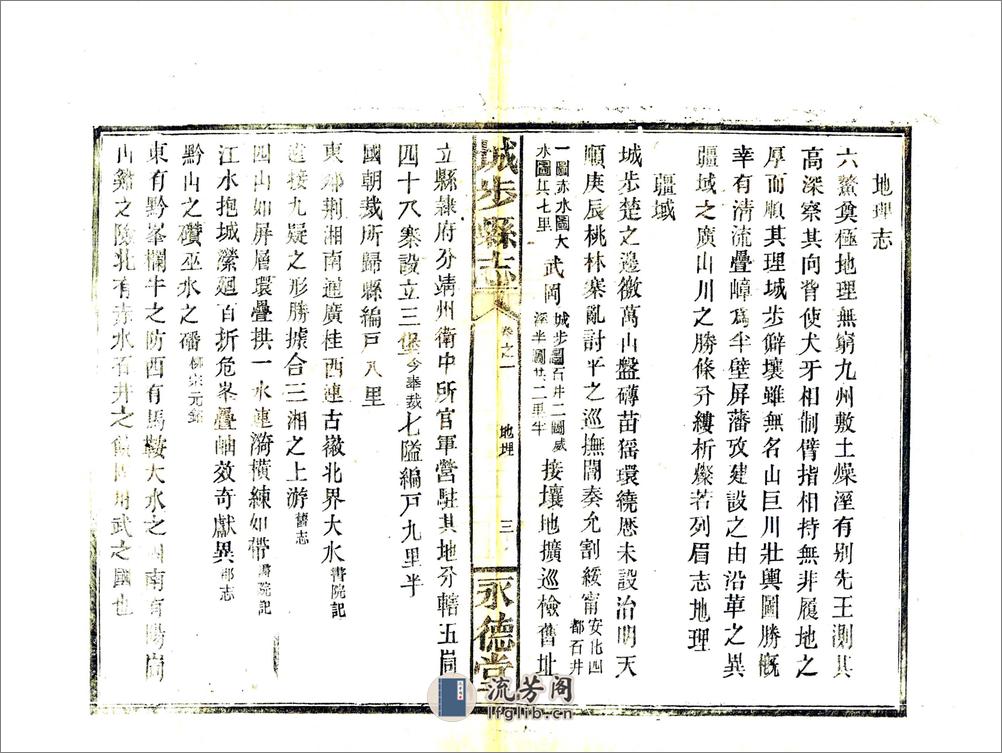 地理志
六鰲奠極地理無窮九州敷土燥溼有別先王測其
高深察其向背使犬牙相制臂指相持無非履地之
厚而順其理城步僻壤雖無名山巨川壯輿圖勝慨
幸有清流疊嶂爲半壁屏藩攷建設之由沿革之異
疆域之廣山川之勝條分縷析燦若列眉志地理
疆域
城步楚之邊徼萬山盤礴苗猺環繞歷未設治明天
順庚辰桃林寨亂討平之巡撫閻奏允割綏甯安化四都石井
一圖赤水圖大水圖共七里武岡城步圖石井二圖威溪半圖廿二里半接壤地擴巡檢舊址
城步縣志
卷之一
地理
三
永德堂
立縣隷府分靖州衛中所官軍營駐其地分轄五峝
四十八寨設立三堡今奉裁七隘編戸九里半
國朝裁所歸縣編戸八里
東鄰荆湘南通廣桂西連古徽北界大水書院記
遠接九疑之形勝據合三湘之上游舊志
四山如屏層環疊拱一水連漪橫練如帶書院記
江水抱城瀠廻百折危峯疊岫效奇獻異郡志
黔山之礸巫水之磻柳宗元銘
東有黔峯欄牛之防西有馬鞍大水之固南有陽峝
山谿之險北有赤水石井之武之國也
流芳阁
lfglib.cn